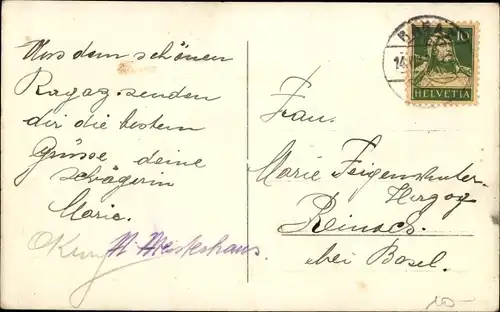 Aus dem schönen
Ragaz senden
dir die besten
Grüsse deine
schägerin
Marie.
RAGAZ
14
10
HELVETIA
Frau.
Marie Feigenwinter-
Herzog
Reinach.
bei Basel.
10-